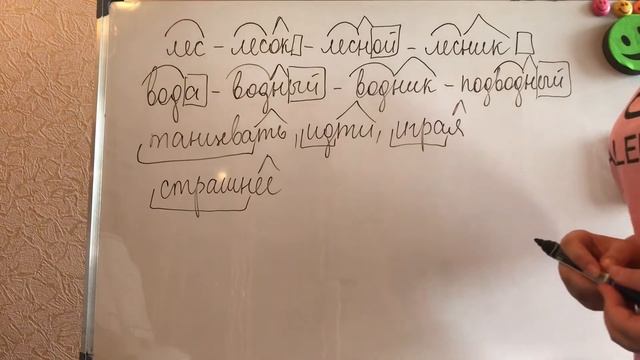 лес - лесок - лесной - лесник
вода - водный - водник - подводный
танцевать, идти, играя
страшнее